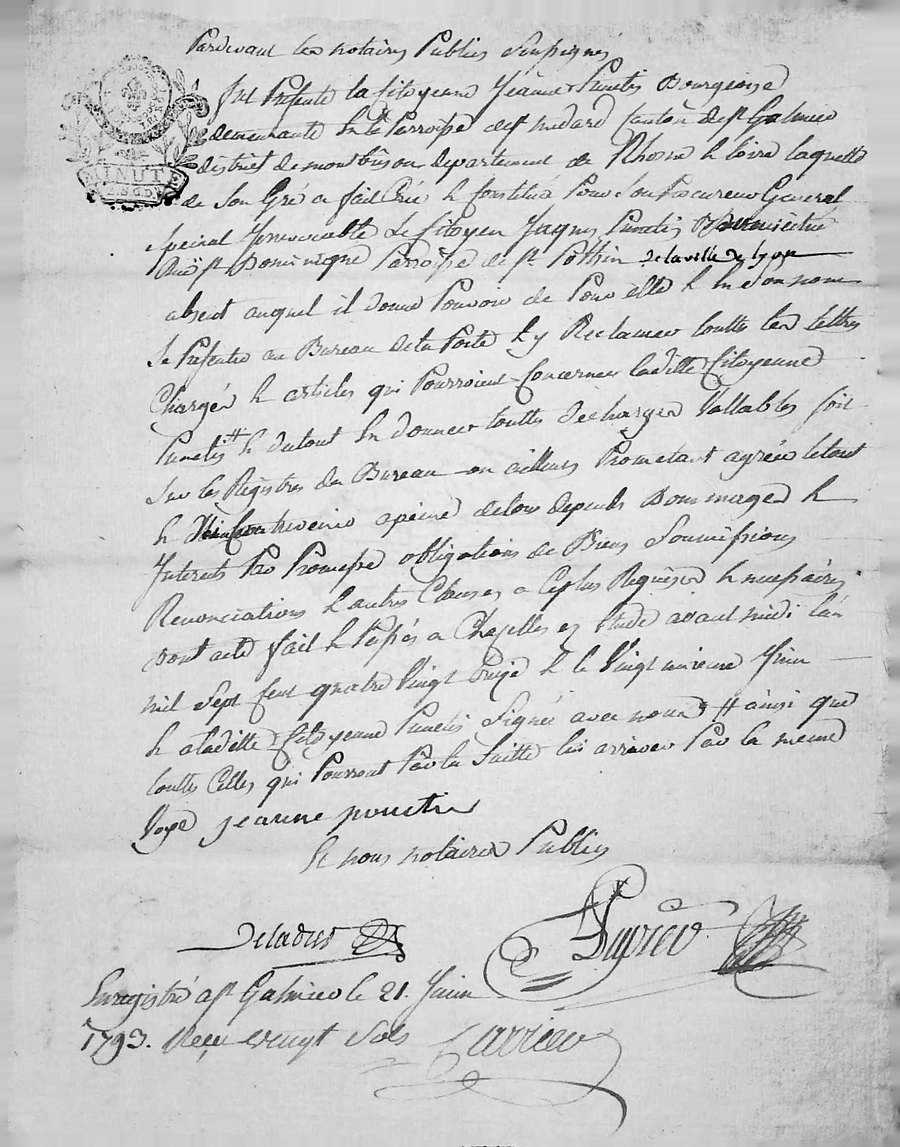 Pardevant les notaires Publics Soussignés
fut Presente la Citoyenne Jeanne Punctis Bourgeoise
demeurante En la Parroisse de st medard Canton de st Galmier
district de montbrison departement de Rhosne & loire laquelle
de Son Gré a fait Créé & Constitué Pour Son Procureur General
Special Irrevocable Le Citoyen Jaques Punctis
Rue st Dominique Parroisse de st Pothin de la ville de lyon
absent auquel il donne Pouvoir de Pour elle & En Son nom
Se Presenter au Bureau de la Poste & y Reclamer touttes les lettres
Chargées & articles qui Pourroient Concerner laditte Citoyenne
Punctis # & du tout En donner touttes decharges Vallables soit
Sur les Régistres du Bureau ou ailleurs Prometant agréer le tout
& contrevenir apeine de tous depends Dommages &
Interets Par Promesse obligations de Biens Soumissions
Renonciations & autres Clauses a Ce plus Requises & necessaires
dont acte fait & Passé a Chazelles Etude avant midi l'an
mil Sept Cent quatre Vingt treize & le Vingt unieme Juin
& a laditte Citoyenne Punctis Signée avec nous # ainsi que
touttes Celles qui Pourront Par la Suitte lui arriver Par la meme
Voye jeanne punctis
Et nous notaires Publics
Enregistré a st Galmier le 21. Juin
1793. Reçu vingt Sols
MINUTE